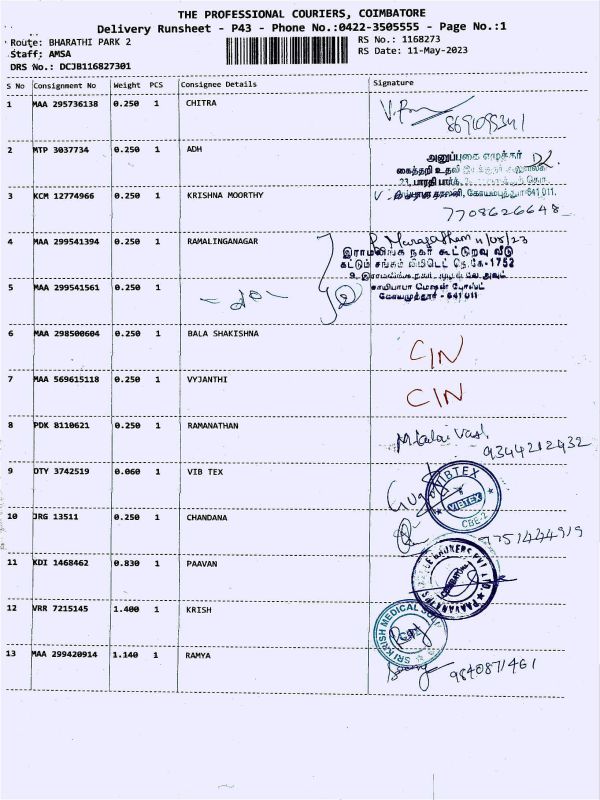 THE PROFESSIONAL COURIERS, COIMBATORE
Delivery Runsheet - P43 - Phone No.:0422-3505555 - Page No.:1
Route: BHARATHI PARK 2
RS No.: 1168273
Staff: AMSA
RS Date: 11-May-2023
DRS No.: DCJB116827301
S No Consignment No Weight PCS Consignee Details Signature
1 MAA 295736138 0.250 1 CHITRA
2 MTP 3037734 0.250 1 ADH
3 KCM 12774966 0.250 1 KRISHNA MOORTHY
7708626648
4 MAA 299541394 0.250 1 RAMALINGANAGAR
11/05/23
இராமலிங்க நகர் கூட்டுறவு வீடு
கட்டும் சங்கம் லிமிடெட் நெ.கே-1752
5 MAA 299541561 0.250 1
சாயிபாபா மேஷன் போஸ்ட்
கோயமுத்தூர் - 641 011
6 MAA 298500604 0.250 1 BALA SHAKISHNA
CIN
7 MAA 569615118 0.250 1 VYJANTHI
CIN
8 PDK 8110621 0.250 1 RAMANATHAN
9344212432
9 OTY 3742519 0.060 1 VIB TEX
VIBTEX
VIBTEX
CBE-2
10 JRG 13511 0.250 1 CHANDANA
11 KDI 1468462 0.830 1 PAAVAN
12 VRR 7215145 1.400 1 KRISH
SRI KRISH MEDICAL
13 MAA 299420914 1.140 1 RAMYA
9840871461